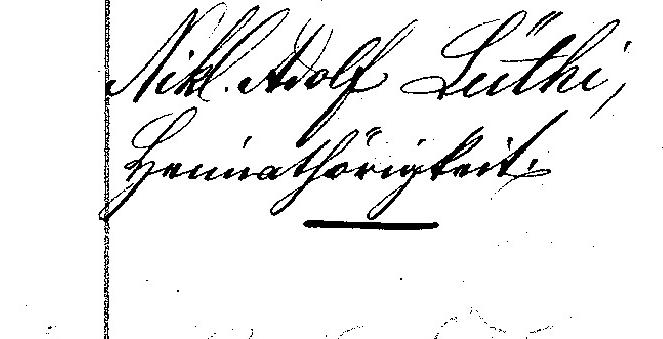 Nikl. Adolf Lüthi,
Heimathörigkeit.